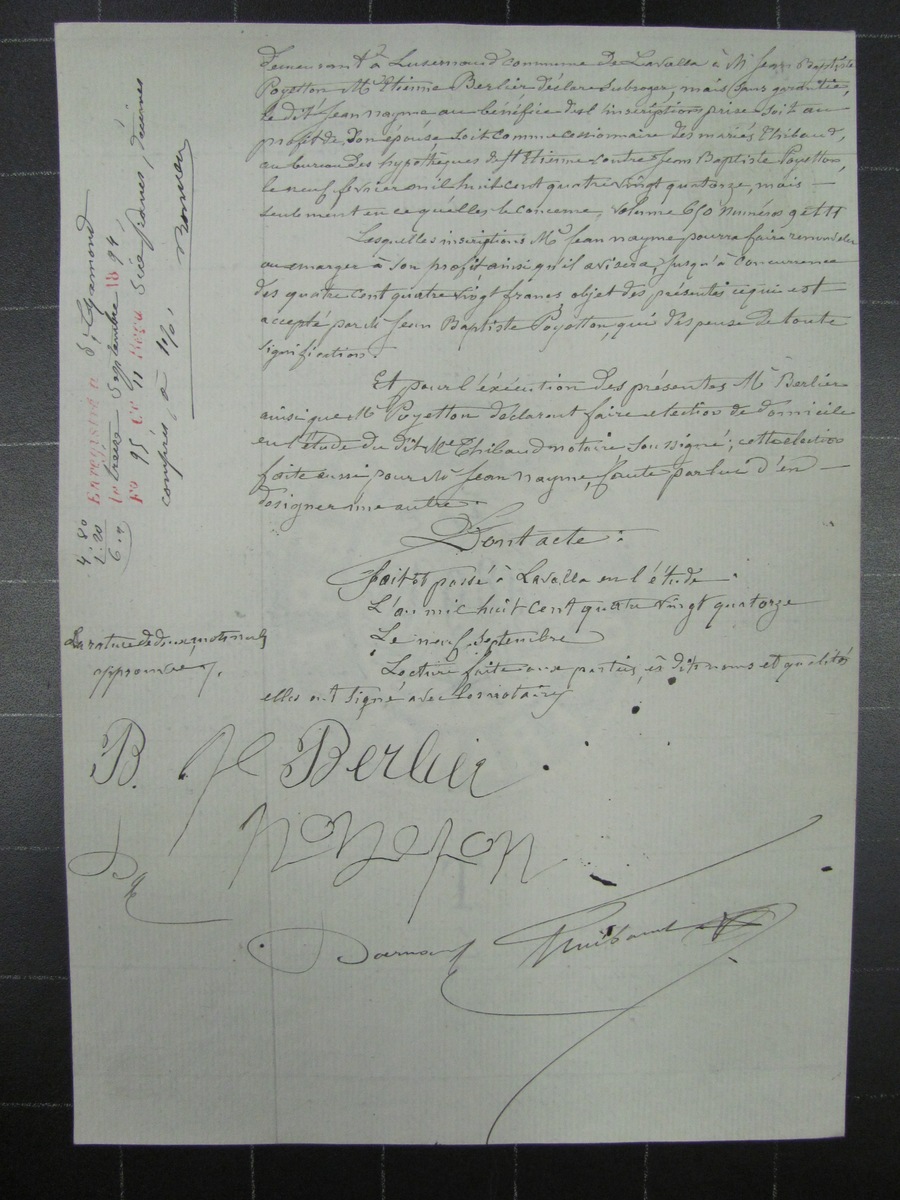 demeurant à Luzernaud commune de Lavalla à Mr Jean Baptiste
Poyetton Mr Etienne Berlier déclare subroger, mais sans garantie,
le dit Jean nayme au bénéfice des inscriptions prises soit au
profit de son épouse soit comme cessionnaire des mariés Thibaud,
au bureau des hypothèques de St Etienne contre Jean Baptiste Poyetton,
le neuf février mil huit cent quatre vingt quatorze, mais
seulement en ce qu'elles le concerne, volume 650 numéros 9 et 11
Lesquelles inscriptions Mr Jean nayme pourra faire
ou emarger à son profit ainsi qu'il avisera, jusqu'à concurrence
des quatre cent quatre vingt francs objet des présentes ce qui est
accepté par Mr Jean Baptiste Poyetton, qui dispense de toute
signification.
Et pour l'éxécution des présentes Mr Berlier
ainsi que Mr Poyetton déclarent faire election de domicile
en l'étude du dit Me Thibaud notaire soussigné; cette élection
faite aussi pour Mr Jean nayme, faute par lui d'en
désigner une autre.
Dont acte:
fait et passé à Lavalla en l'étude.
L'an mil huit cent quatre vingt quatorze
Le neuf septembre
Lecture faite aux parties, ès dits noms et qualités
elles ont signé avec les notaires
La rature de deux mots nuls
approuvée
B. Berlier
Poyeton
Thibaud
Enregistré à St Chamond
le treize Septembre 1894
Fo 95 Ce 11 Reçu Six francs, décimes
compris, à
4.80
1.20
6.